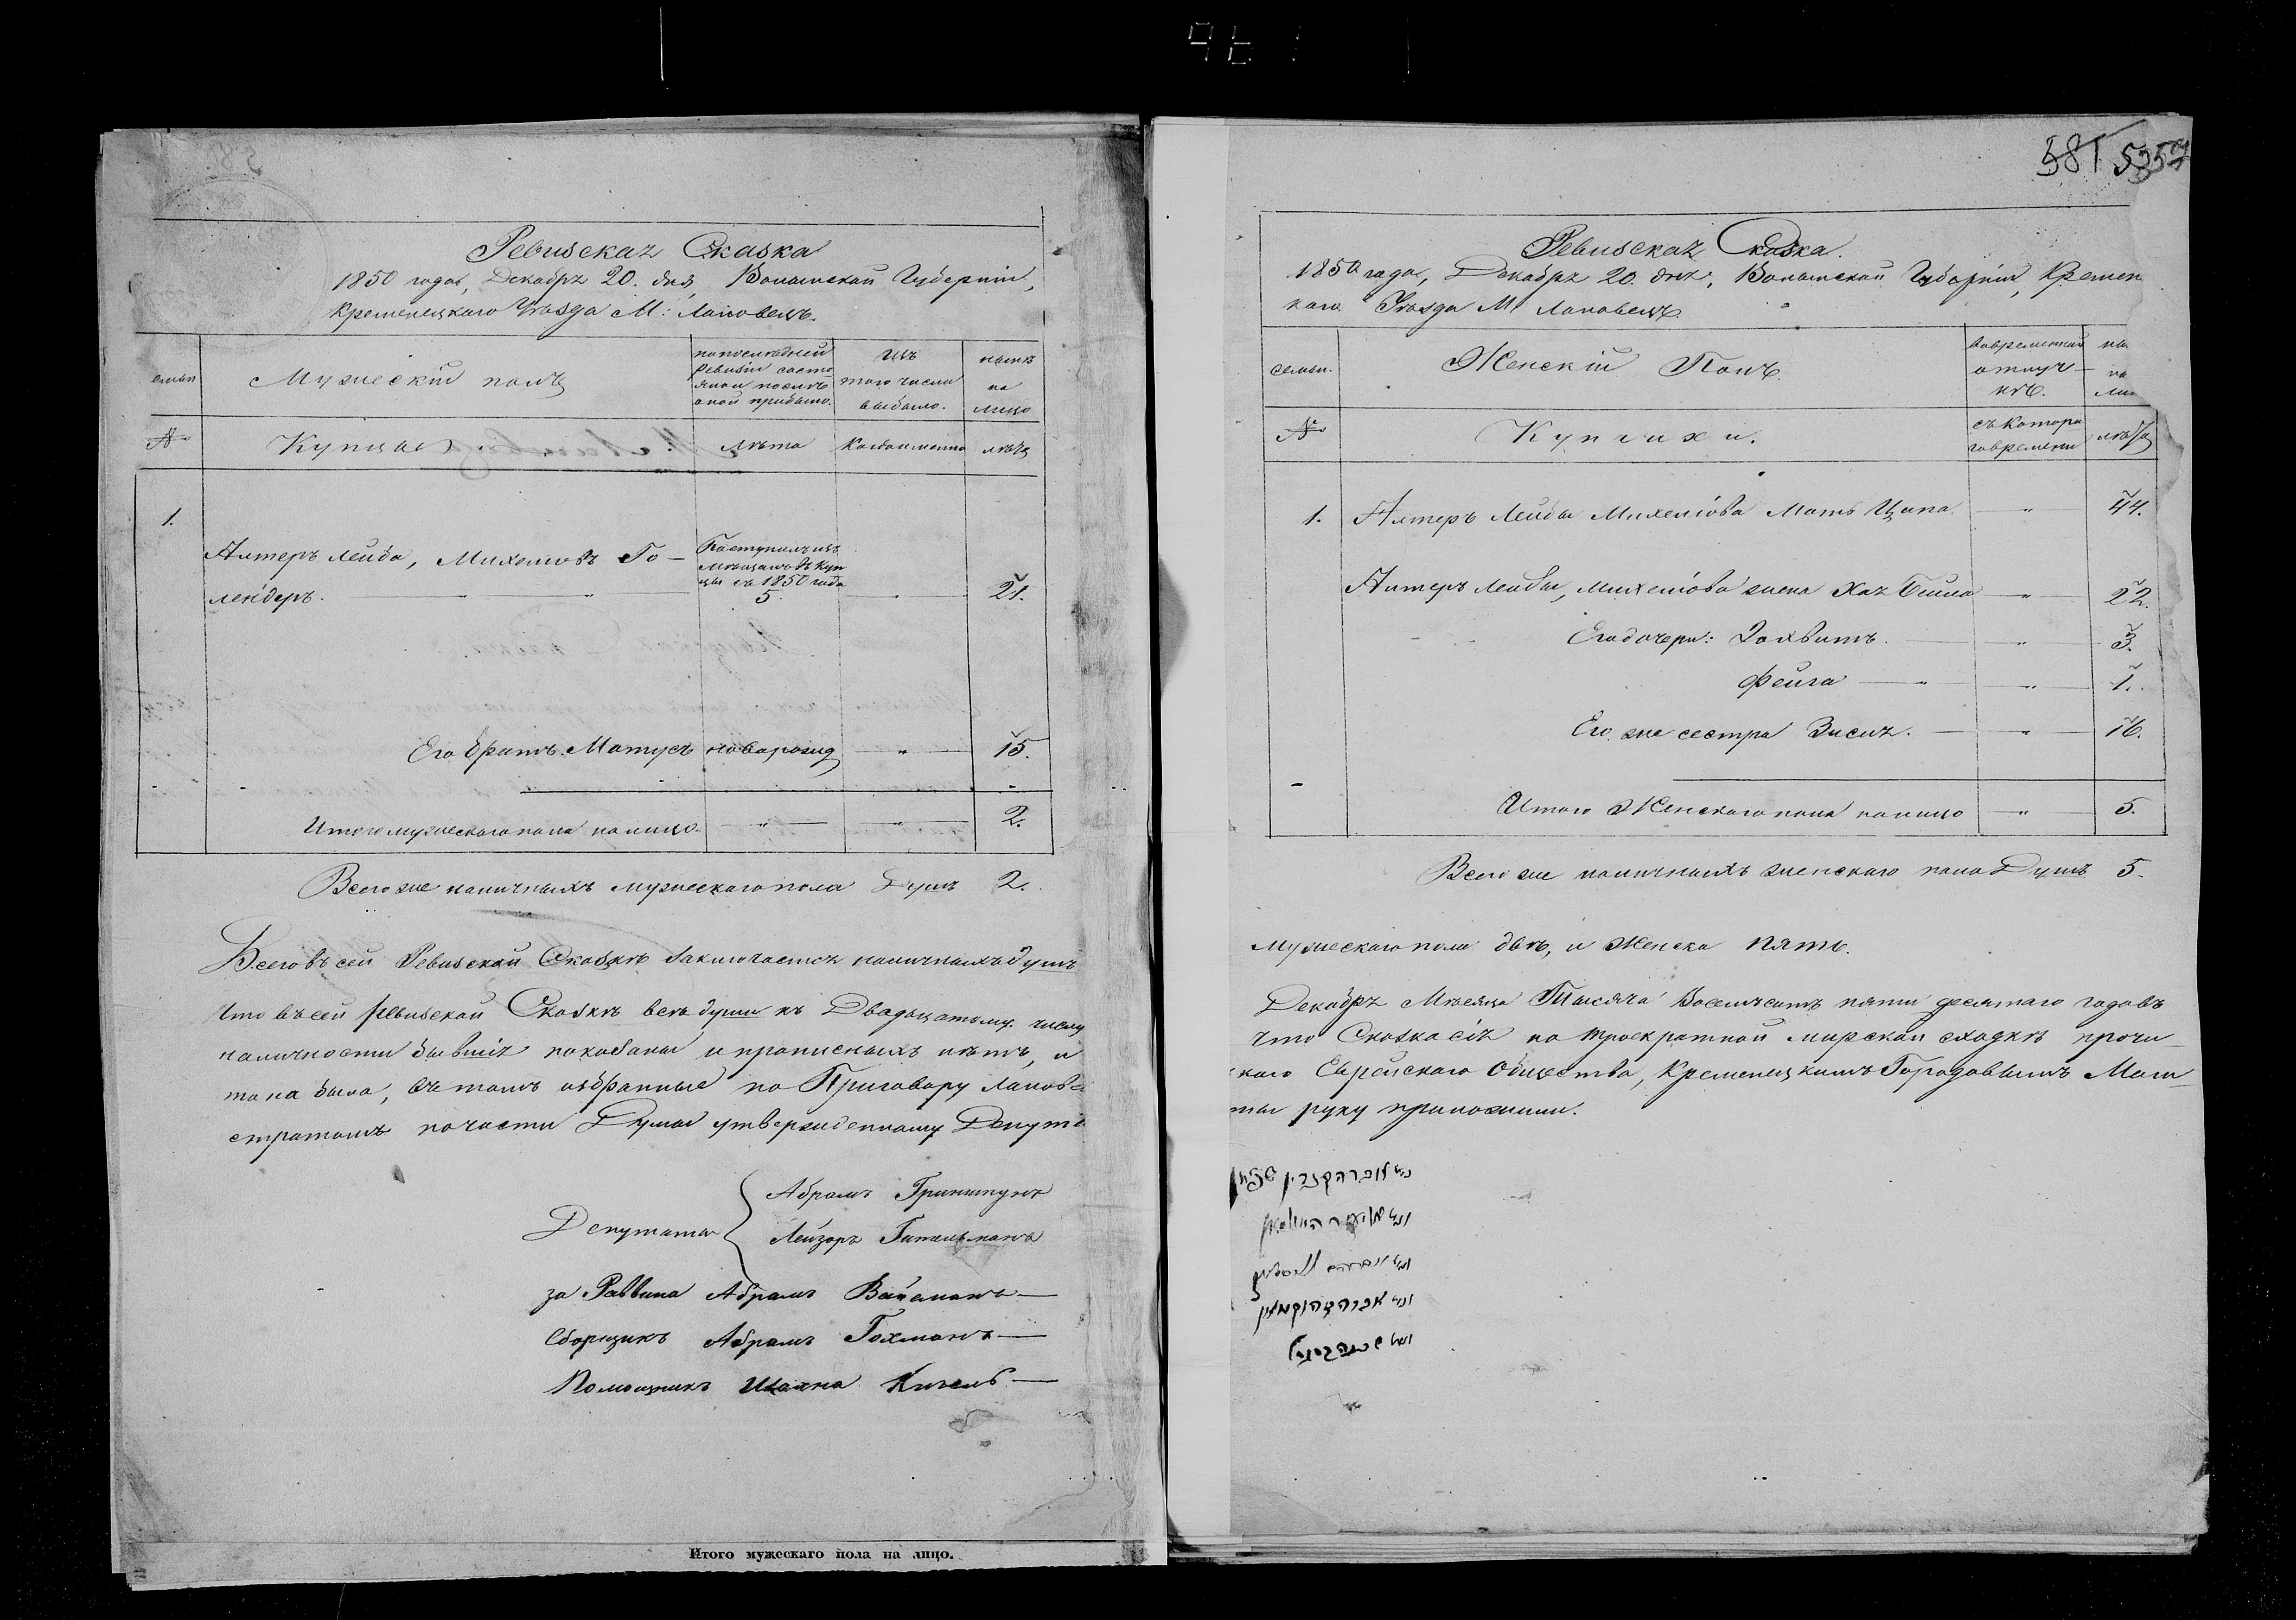 581 5357
Ревиская Сказка
1850 года, Декабря 20. дня, Волынской Губерніи,
Кременецкаго Уѣзда М: Лановецъ.
семьи
Мужескій полъ
по последней ревизіи состояло и после оной прибыло.
Изъ того числа выбыло.
нынѣ на лицо
№
Купцы
лѣта
Когда именно
лѣтъ
1.
Алтеръ Лейба, Михелiовъ Го-
лендеръ. — " —
Поступилъ изъ
мѣщанъ въ Куп
цы съ 1850 года
5.
"
21.
Его братъ Матусъ новорожд — " — 15.
Итого мужескаго пола налицо. — " — " — 2.
Всего же наличныхъ мужескаго пола Душъ 2.
Всего въ сей Ревиской Сказкѣ заключается наличныхъ душъ
Что въ сей ревиской Сказкѣ всѣ души къ Двадцатому числу
наличности бывшія показаны и прописныхъ нѣтъ, и
тана была, въ томъ избранные по Приговору Лановец
стратомъ по части Думы утвержденному Депута
Депутаты
Абрамъ Гриншпунъ
Лейзоръ Гительманъ
за Раввина Абрамъ Вайсманъ —
Сборщикъ Абрамъ Гохманъ —
Помощникъ Шахна Кигель —
Итого мужескаго пола на лицо.
Ревиская Сказка.
1850 года, Декабря 20. дня, Волынской Губерніи, Кремен
каго Уѣзда М Лановецъ.
семьи.
Женскій Полъ.
во временной отлуч- кѣ.
ны на ли
№
Купчихи.
съ котора го времени
лѣта
1. Алтеръ Лейбы Михелiова Мать Ципа " 44.
Алтеръ Лейбы, Михелiова жена Хая Бейла — " — 22.
Его дочери: Иохвитъ. — " — 3.
Фейга — " — " — 1.
Его же сестра Зися. — " — 16.
Итого Женскаго пола налицо — " — 5.
Всего же наличныхъ женскаго пола Душъ 5.
мужескаго пола двѣ, и Женска пять.
Декабря Мѣсяца Тысяча Восемьсотъ пяти десятаго года въ
что Сказка сія на троекратной мирской сходкѣ прочи-
каго Еврейскаго Общества, Кременецкимъ Городовымъ Маги-
ты руку приложили.